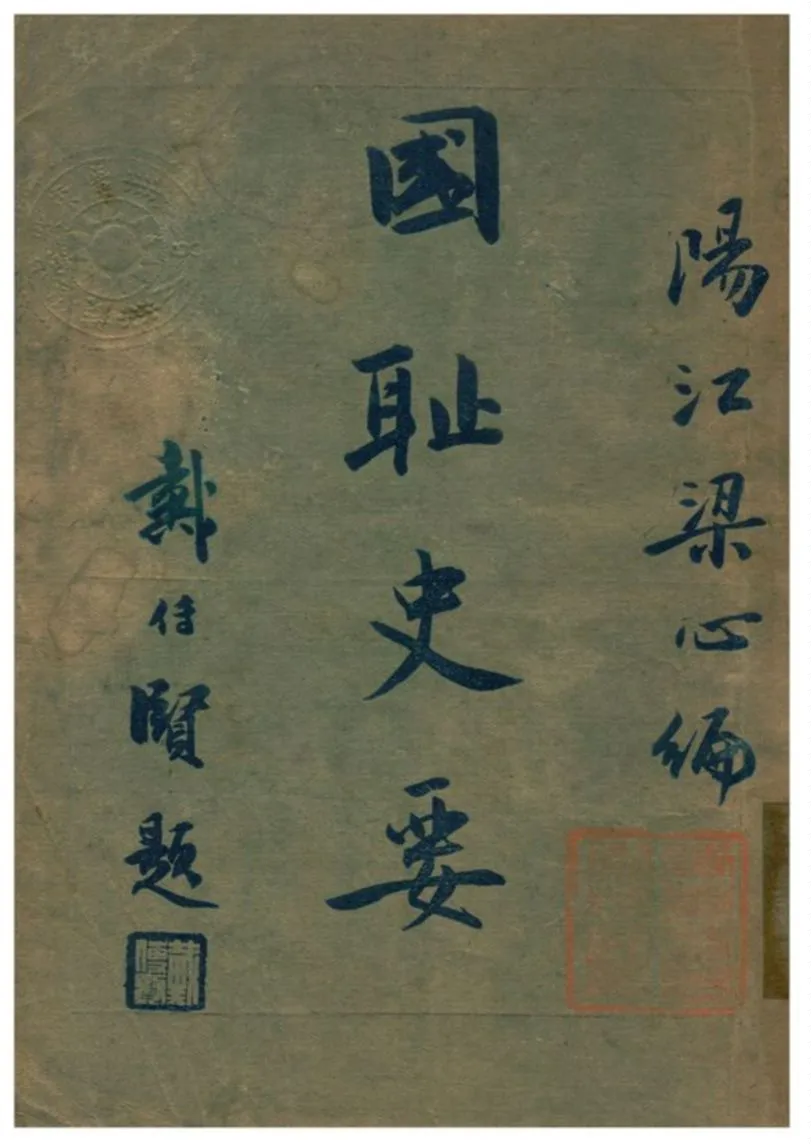 陽江梁心編
國耻史要
戴傳賢題